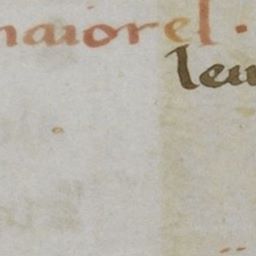 maiorel.
leu